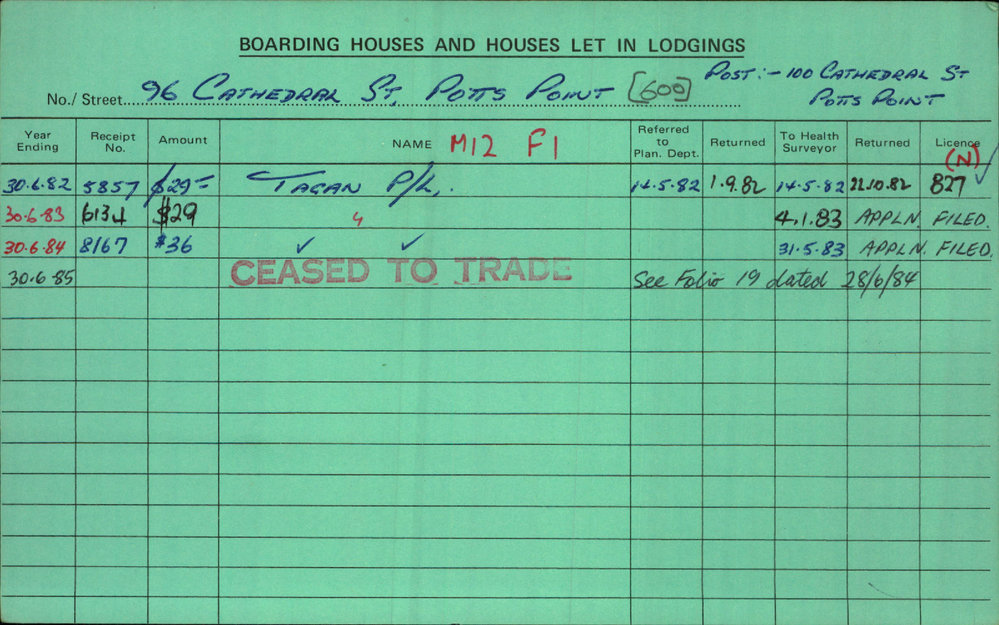 BOARDING HOUSES AND HOUSES LET IN LODGINGS
No./ Street 96 CATHEDRAL ST, POTTS POINT [600] POST:- 100 CATHEDRAL ST
POTTS POINT
Year Ending Receipt No. Amount NAME M12 F1 Referred to Plan. Dept. Returned To Health Surveyor Returned Licence (N)
30.6.82 5857 $29= TAGAN P/L. 14.5.82 1.9.82 14.5.82 22.10.82 827 ✓
30.6.83 6134 $29 4.1.83 APPLN. FILED.
30.6.84 8167 $36 ✓ ✓ 31.5.83 APPLN. FILED.
30.6.85 CEASED TO TRADE See Folio 19 dated 28/6/84